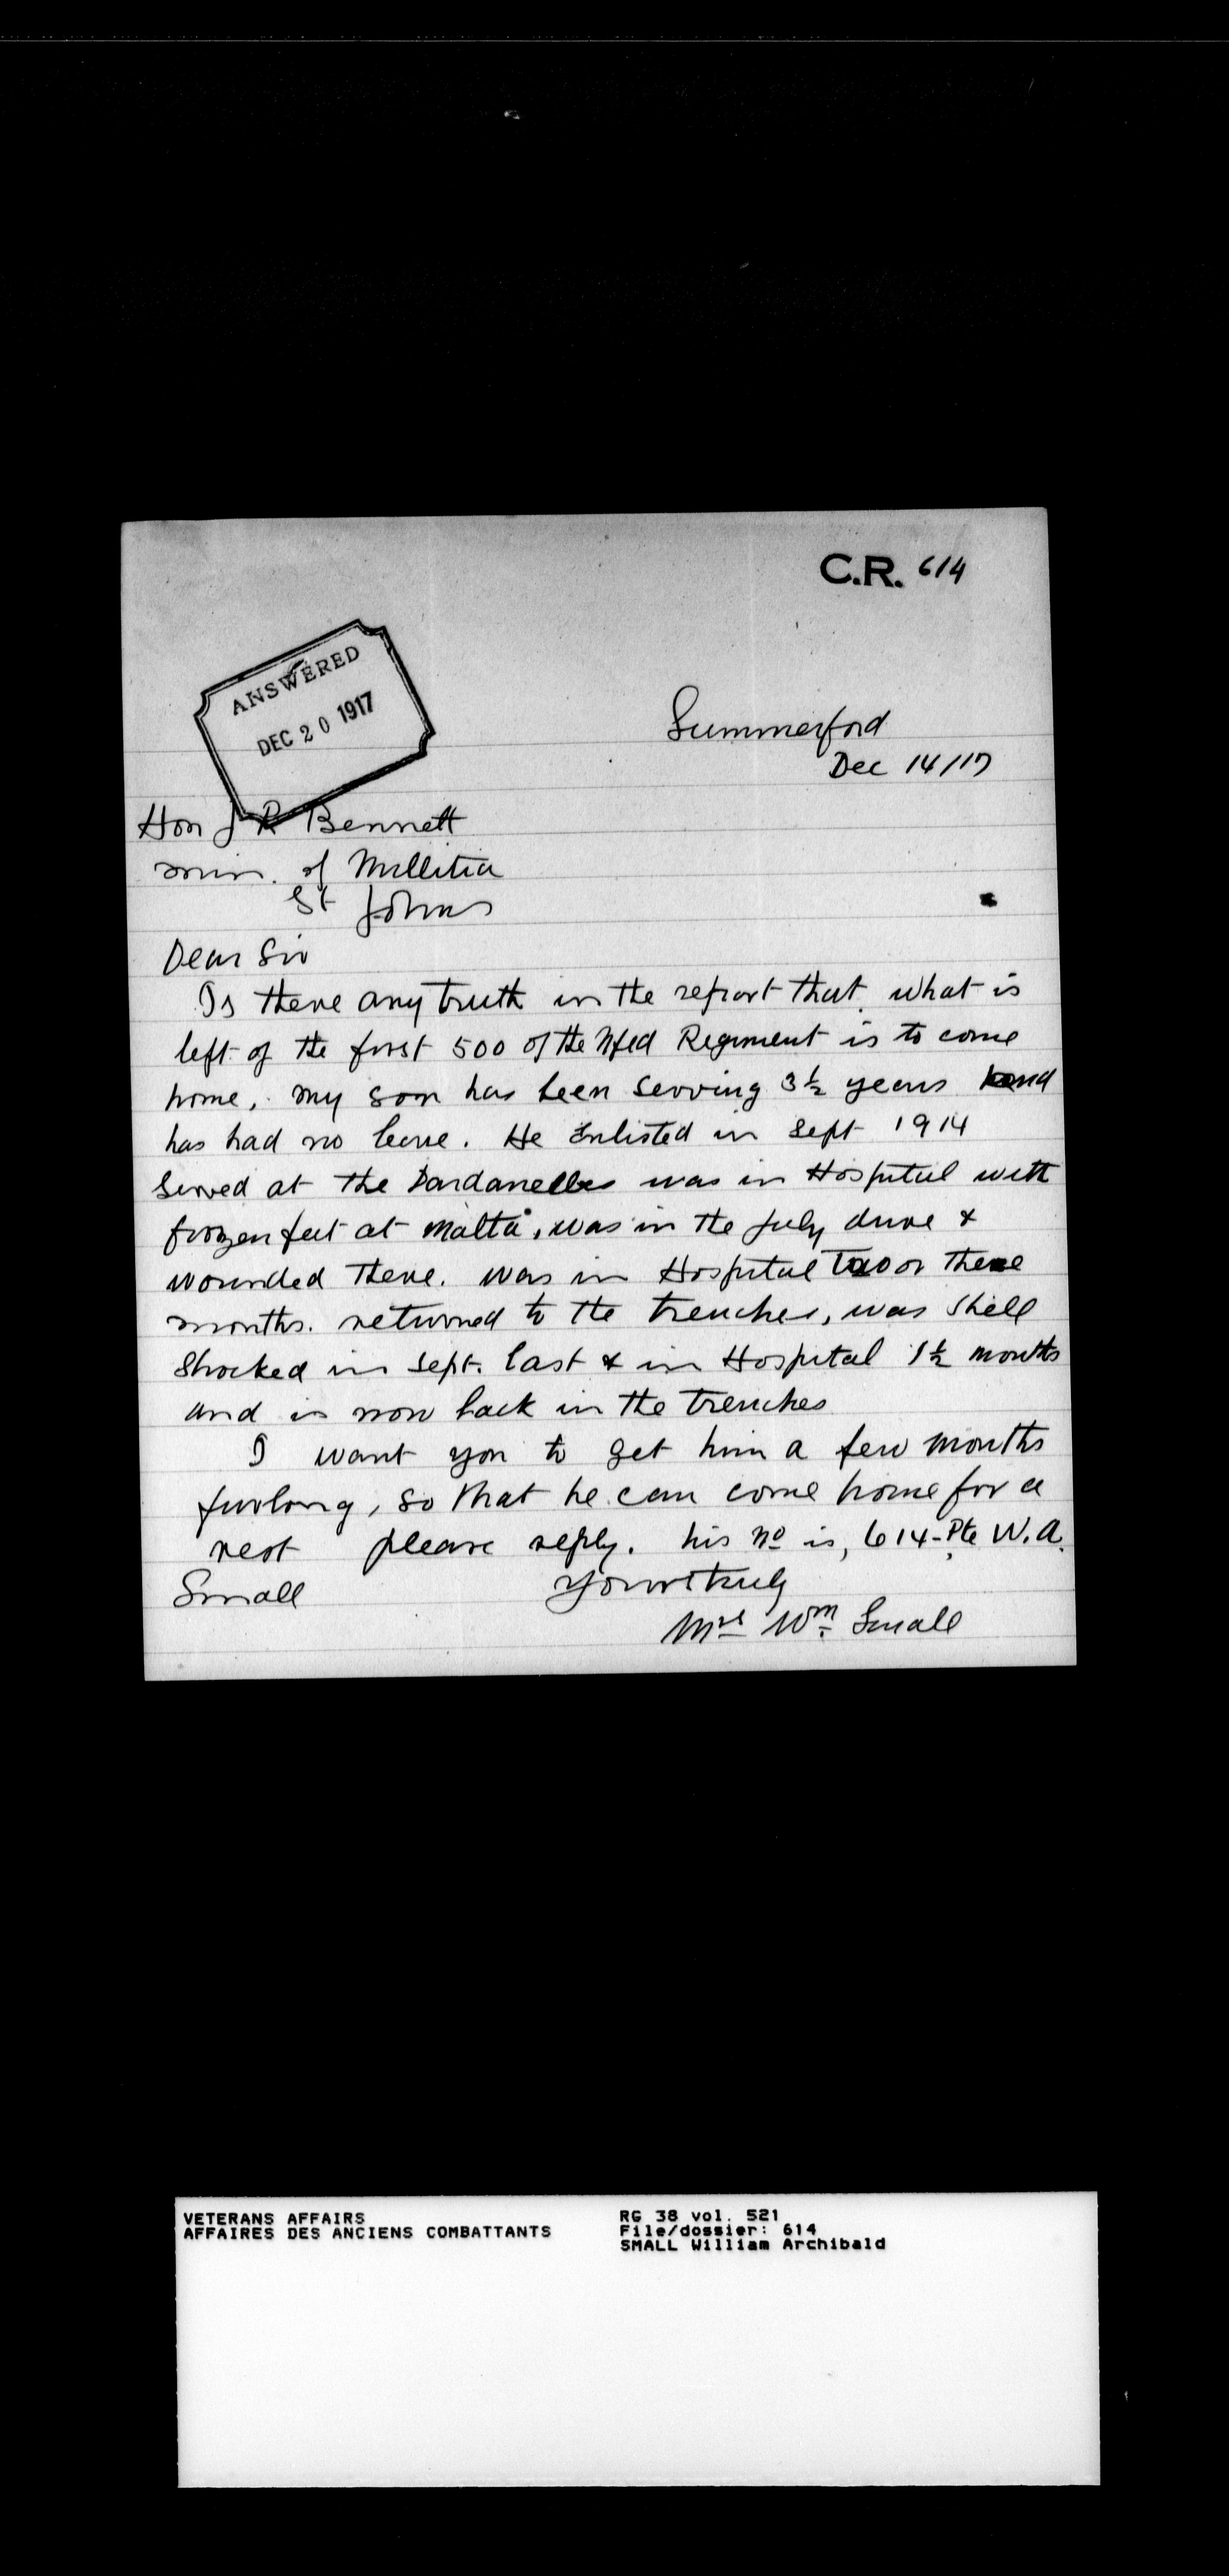 C.R. 614
ANSWERED
DEC 20 1917
Summerford
Dec 14/17
Hon J R Bennett
min. of Millitia
St Johns
Dear Sir
Is there any truth in the report that what is
left of the first 500 of the Nfld Regiment is to come
home, my son has been serving 3½ years and
has had no leave. He Enlisted in Sept 1914
Served at the Dardanelles was in Hospital with
frozen feet at Malta, was in the July drive &
wounded there. was in Hospital Two or three
months. returned to the trenches, was Shell
Shocked in Sept. last & in Hospital 1½ months
and is now back in the trenches
I want you to get him a few months
furlong, so that he can come home for a
rest please reply. his No is, 614-Pte W.A.
Small Yours truly
Mrs Wm Small
VETERANS AFFAIRS
AFFAIRES DES ANCIENS COMBATTANTS
RG 38 vol. 521
File/dossier: 614
SMALL William Archibald